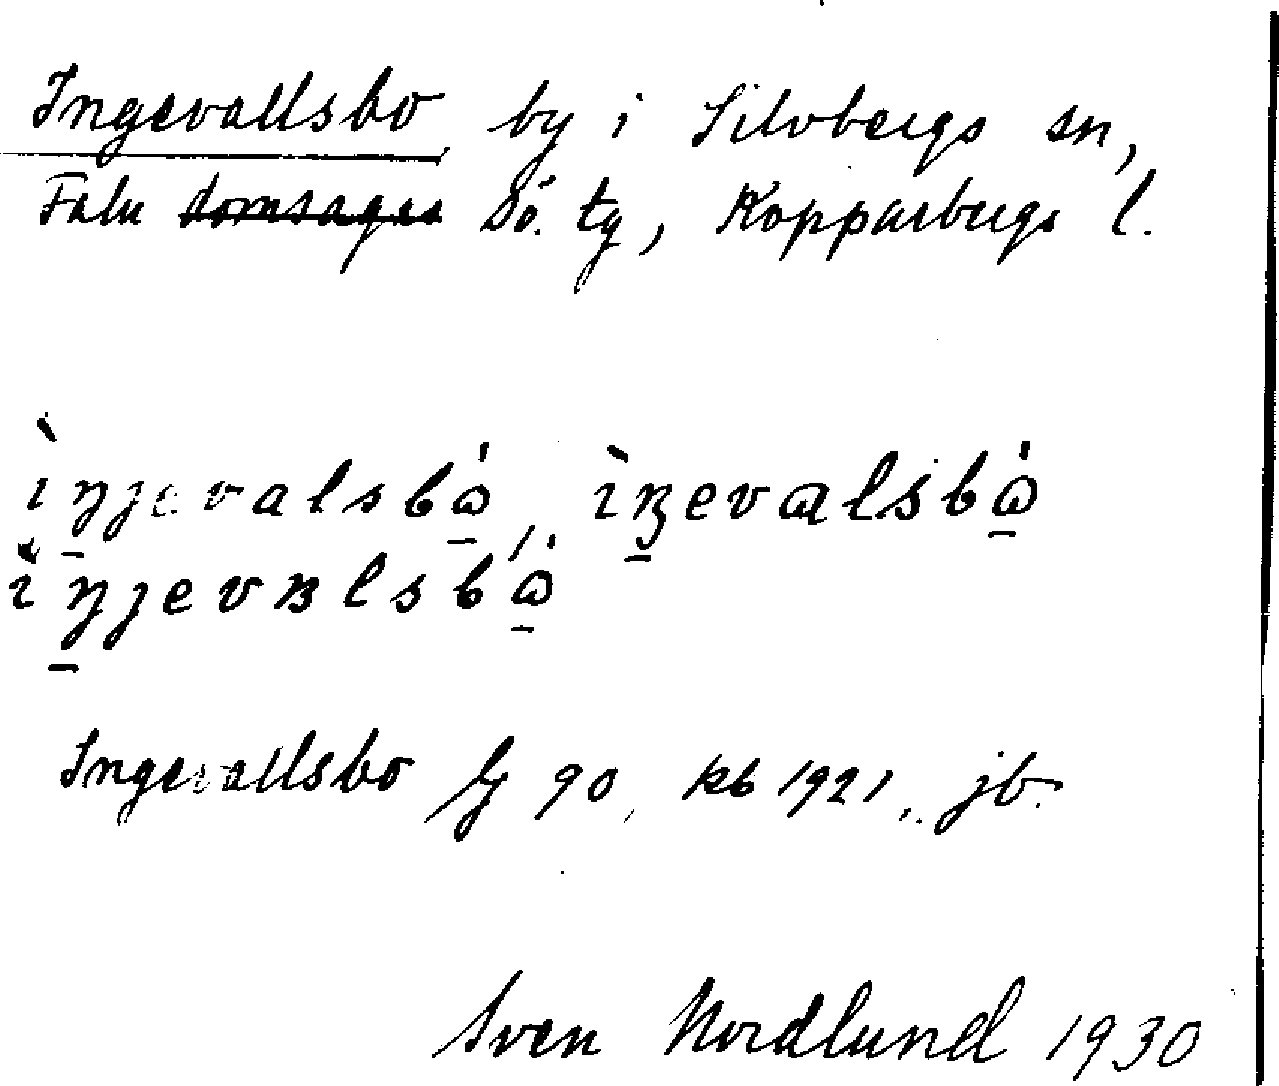 Ingevallsbo by i Silvbergs sn,
Falu domsagas Sö. tg, Kopparbergs l.
ìŋjevalsbὼ, ìŋevalsbὼ
ìŋjevɐlsbὼ
Ingevallsbo 90, kb 1921, jb.
Sven Nordlund 1930